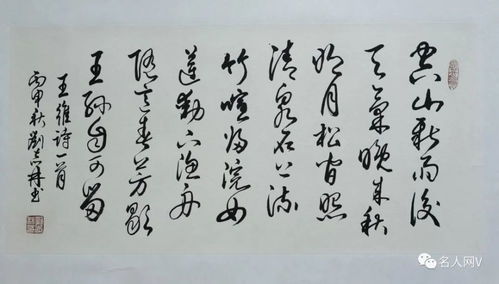 空山新雨後
天氣晚來秋
明月松間照
清泉石上流
竹喧歸浣女
蓮動下漁舟
隨意春芳歇
王孫自可留
王維詩一首
丙申秋劉志书
名人网V